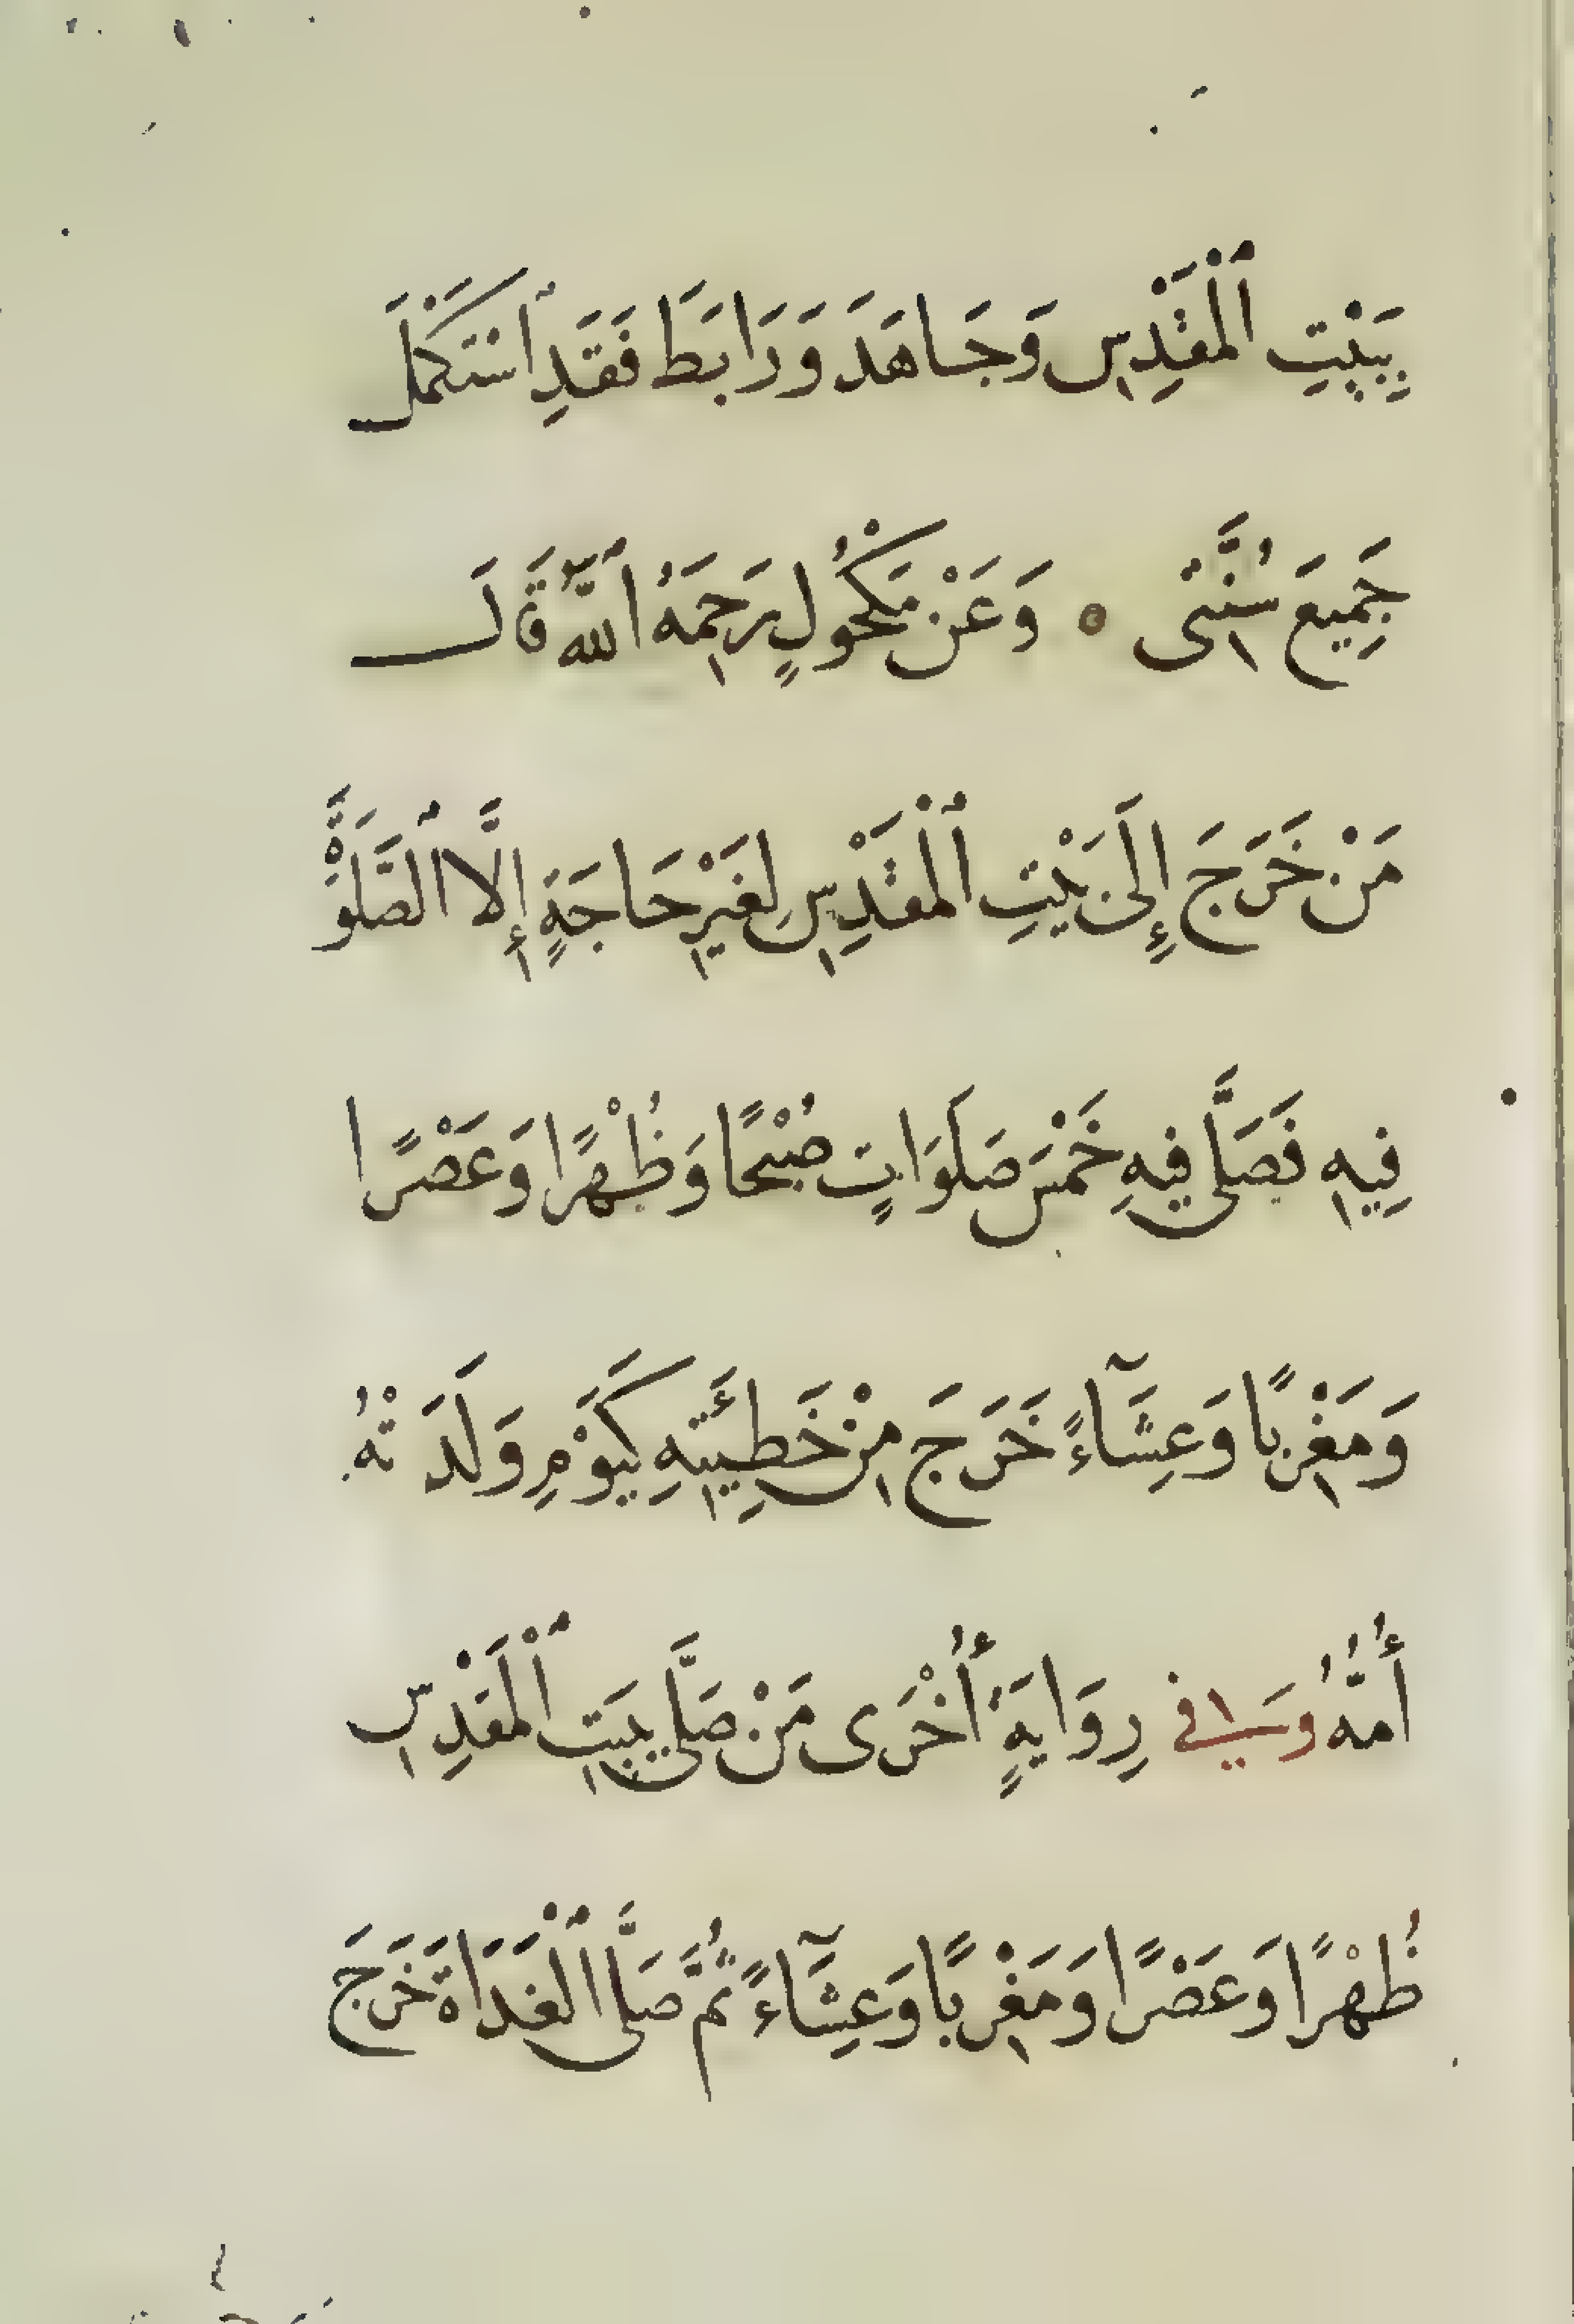 بِبَيْتِ ٱلْمَقْدِسِ وَجَاهَدَ وَرَابَطَ فَقَدِ ٱسْتَكْمَلَ
جَمِيعَ سُنَّتِى وَعَنْ مَكْحُولٍ رَحِمَهُ ٱللَّهُ قَالَ
مَنْ خَرَجَ إِلَىٰ بَيْتِ ٱلْمَقْدِسِ لِغَيْرِ حَاجَةٍ إِلَّا ٱلصَّلَوٰةَ
فِيهِ فَصَلَّى فِيهِ خَمْسَ صَلَوَاتٍ صُبْحًا وَظُهْرًا وَعَصْرًا
وَمَغْرِبًا وَعِشَآءً خَرَجَ مِنْ خَطِيئَتِهِ كَيَوْمِ وَلَدَتْهُ
أُمُّهُ رِوَايَةٍ أُخْرَى مَنْ صَلَّى بِبَيْتِ ٱلْمَقْدِسِ
ظُهْرًا وَعَصْرًا وَمَغْرِبًا وَعِشَآءً ثُمَّ صَلَّى ٱلْغَدَاةَ خَرَجَ